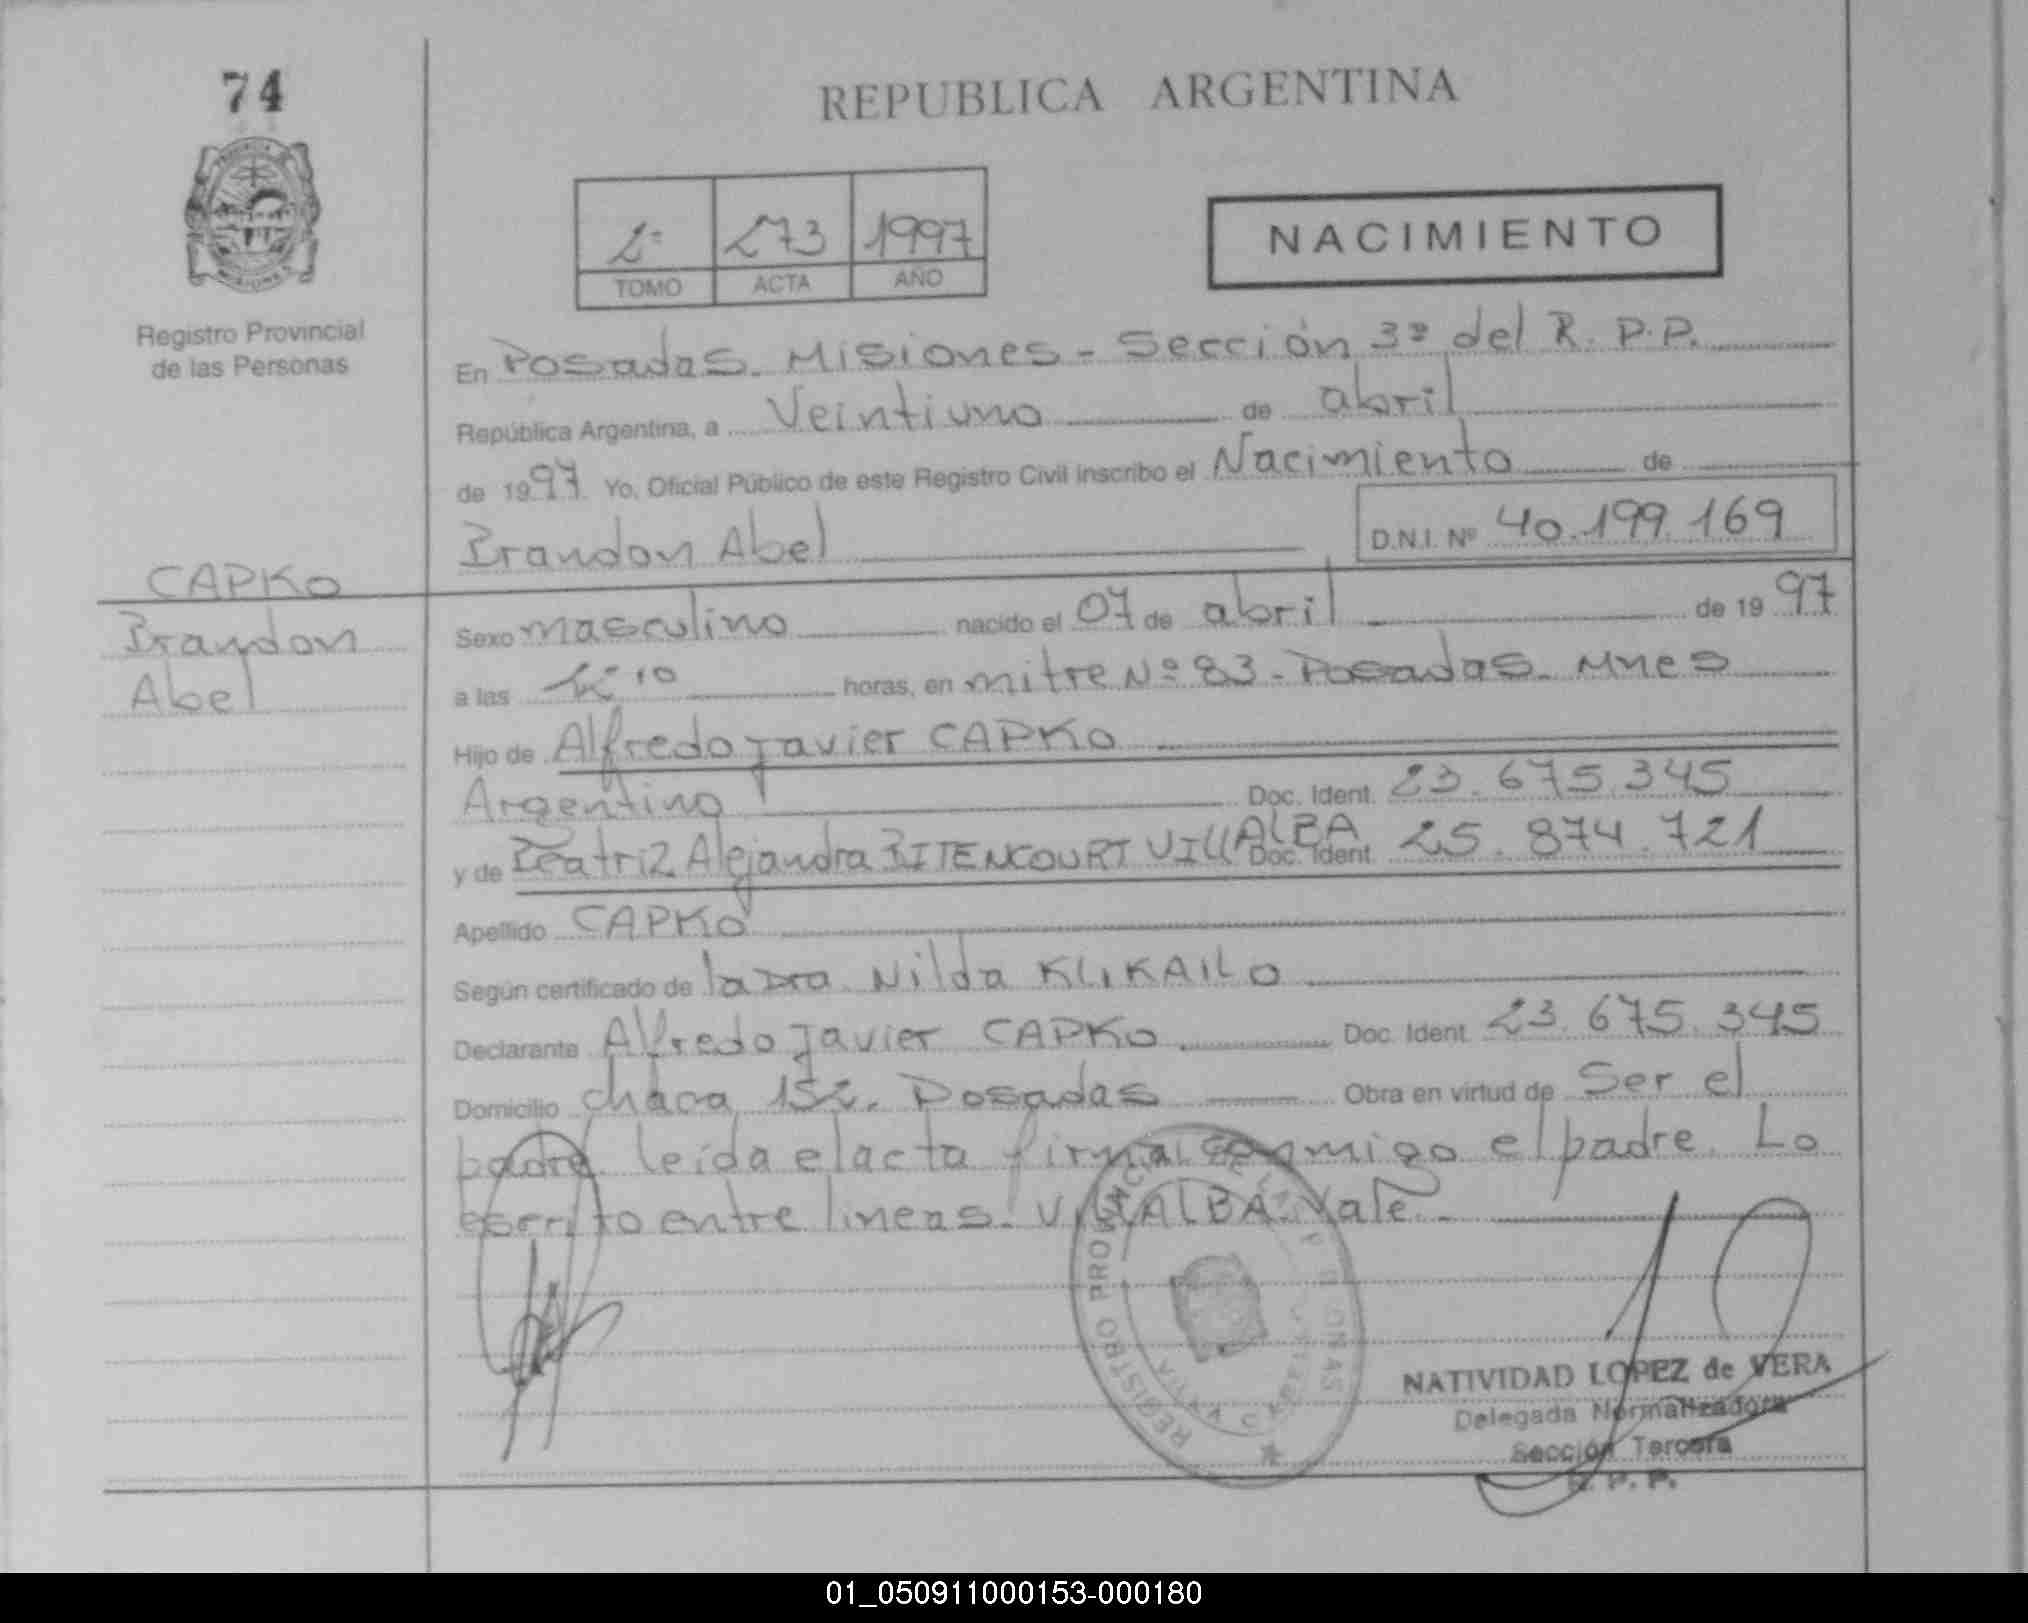 74
REPUBLICA ARGENTINA
2º 273 1997
TOMO ACTA AÑO
NACIMIENTO
Registro Provincial
de las Personas
En Posadas. Misiones - Sección 3ª del R. P. P.
República Argentina, a Veintiuno de abril
de 1997 Yo, Oficial Público de este Registro Civil inscribo el Nacimiento de
Brandon Abel D.N.I. Nº 40.199.169
CAPKO
Brandon
Abel
Sexo masculino nacido el 07 de abril de 1997
a las horas, en mitre Nº 83 - Posadas. Mnes
Hijo de Alfredo Javier CAPKO
Argentino Doc. Ident. 23.675.345
y de Beatriz Alejandra BITENCOURT VILLALBA Doc. Ident. 25.874.721
Apellido CAPKO
Según certificado de la Dra. Nilda KLIKAILO
Declarante Alfredo Javier CAPKO Doc. Ident. 23.675.345
Domicilio chaca 152. Posadas Obra en virtud de Ser el
padre. leída el acta firma conmigo el padre. Lo
escrito entre lineas. VILLALBA. Vale.
REGISTRO PROVINCIAL DE LAS PERSONAS
NATIVIDAD LOPEZ de VERA
Delegada Normalizadora
Sección Tercera
R. P. P.
01_050911000153-000180